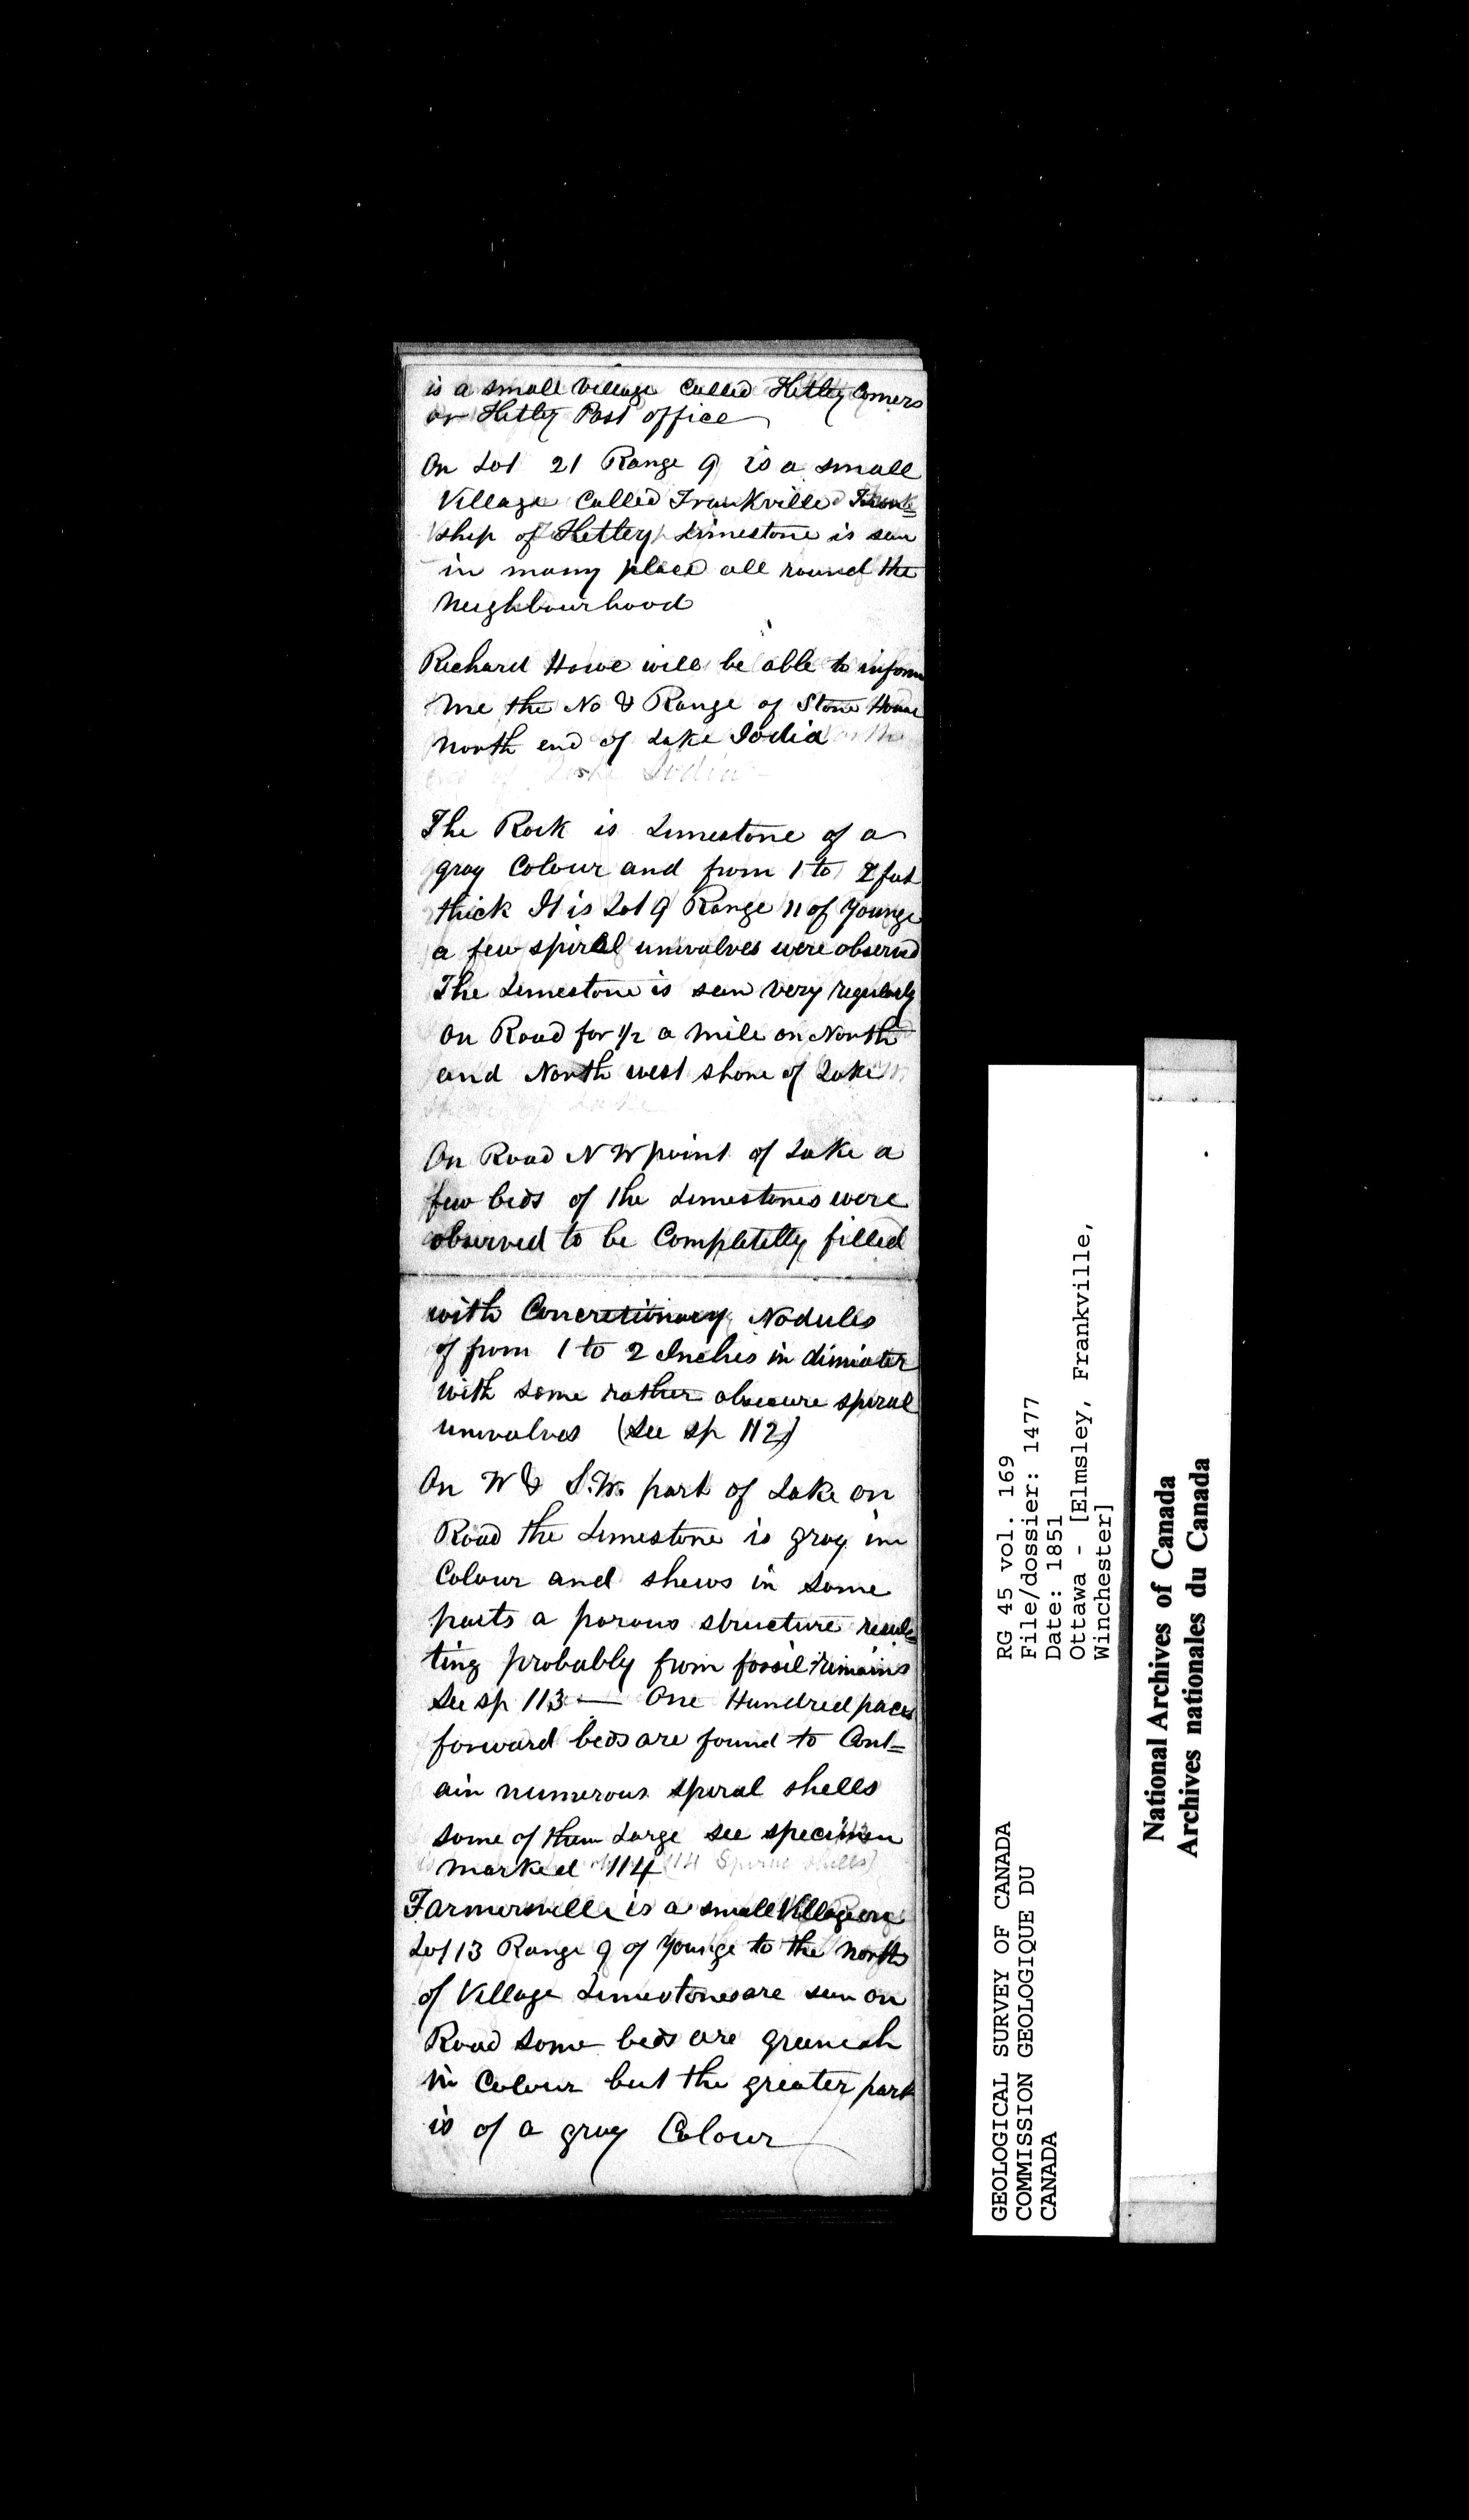 is a small Village Called Kitley Corners
or Kitley Post office
On Lot 21 Range 9 is a small
Village Called Frankville Town=
ship of Kitley Limestone is seen
in many place all round the
Neighbourhood
Richard Howe will be able to inform
me the No & Range of Stone House
north end of Lake Iodia
The Rock is Limestone of a
gray Colour and from 1 to 2 feet
thick It is Lot 9 Range 11 of Yonge
a few spiral univalves were observed
The Limestone is seen very regularly
On Road for 1/2 a mile on North
and North west shore of Lake
On Road N W point of Lake a
few beds of the Limestones were
observed to be Completelly filled
with Concretionary Nodules
of from 1 to 2 Inches in dimiater
with some rather obscure spiral
univalves (See sp 112)
On W & S.W. part of Lake on
Road the Limestone is gray in
Colour and shews in some
parts a porous structure resul=
ting probably from fossil remains
See sp 113 — One Hundred paces
forward beds are found to Cont=
ain numerous spiral shells
some of them Large see specimen
marked 114
Farmersville is a small Village on
Lot 13 Range 9 of Younge to the North
of Village Limestones are seen on
Road some beds are greenish
in Colour but the greater part
is of a gray Colour
GEOLOGICAL SURVEY OF CANADA
COMMISSION GEOLOGIQUE DU
CANADA
RG 45 vol. 169
File/dossier: 1477
Date: 1851
Ottawa - [Elmsley, Frankville,
Winchester]
National Archives of Canada
Archives nationales du Canada